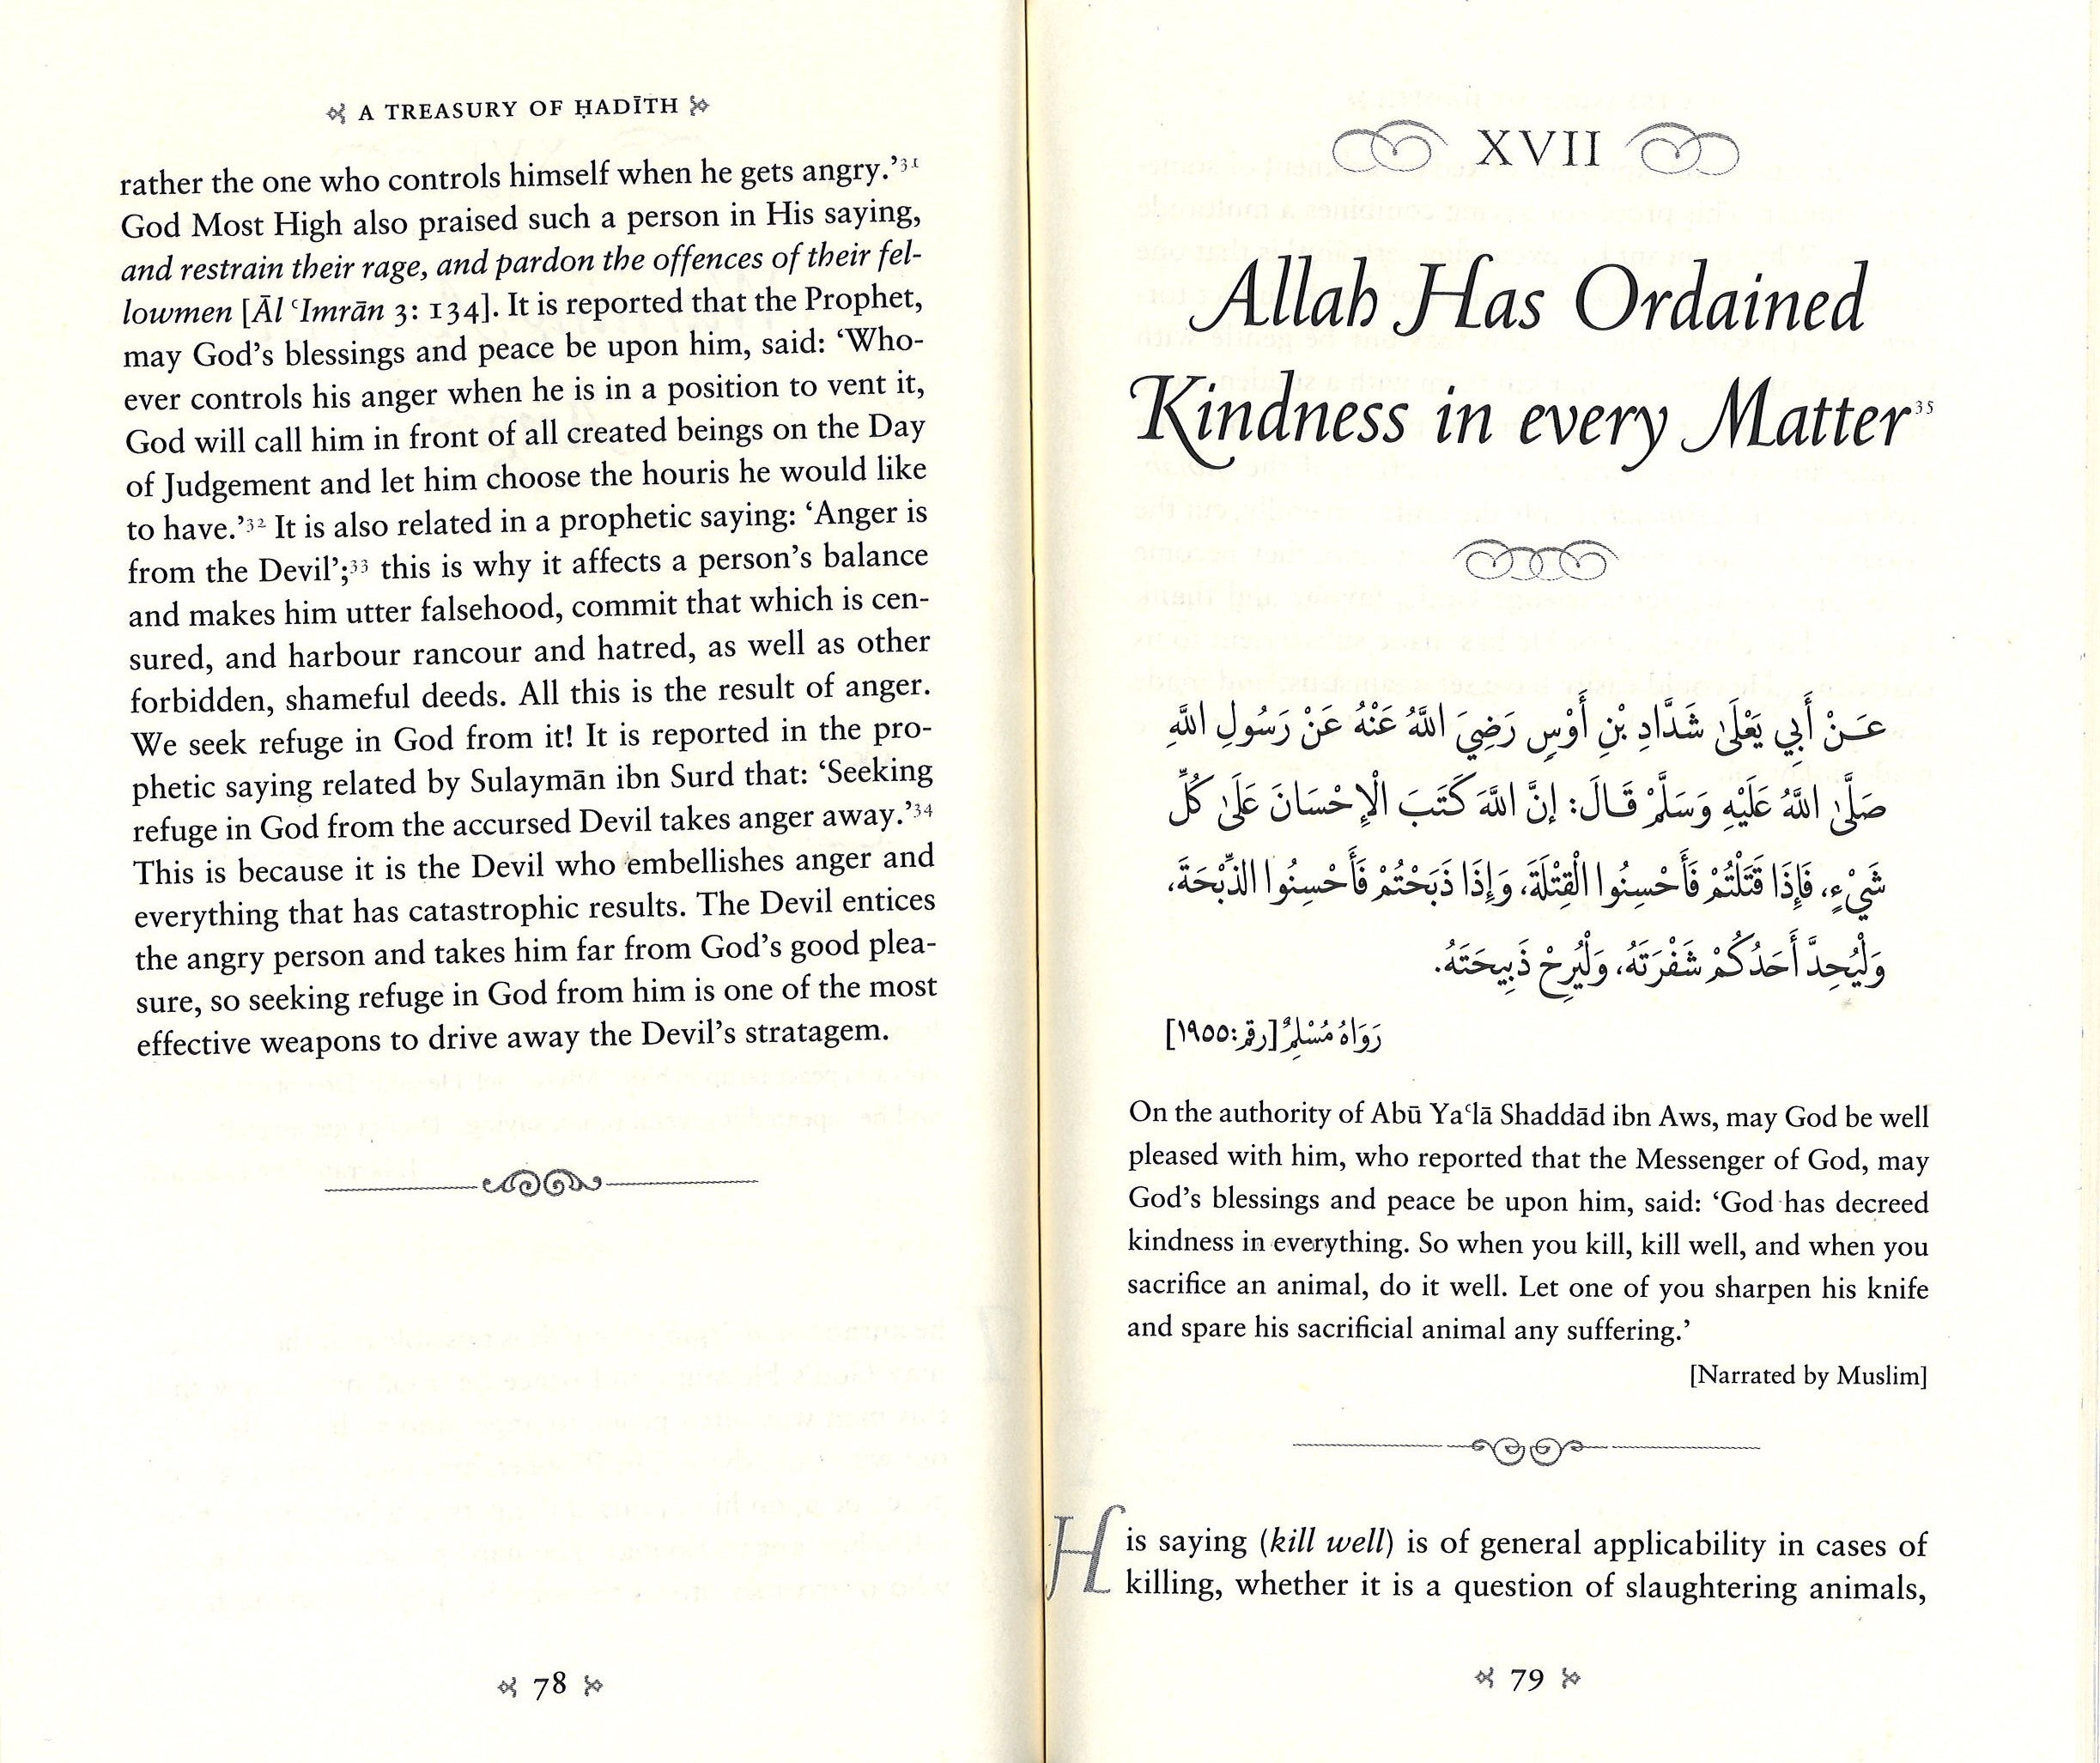 A TREASURY OF ḤADĪTH
rather the one who controls himself when he gets angry.’³¹
God Most High also praised such a person in His saying,
and restrain their rage, and pardon the offences of their fel-
lowmen [Āl ʿImrān 3: 134]. It is reported that the Prophet,
may God’s blessings and peace be upon him, said: ‘Who-
ever controls his anger when he is in a position to vent it,
God will call him in front of all created beings on the Day
of Judgement and let him choose the houris he would like
to have.’³² It is also related in a prophetic saying: ‘Anger is
from the Devil’;³³ this is why it affects a person’s balance
and makes him utter falsehood, commit that which is cen-
sured, and harbour rancour and hatred, as well as other
forbidden, shameful deeds. All this is the result of anger.
We seek refuge in God from it! It is reported in the pro-
phetic saying related by Sulaymān ibn Surd that: ‘Seeking
refuge in God from the accursed Devil takes anger away.’³⁴
This is because it is the Devil who embellishes anger and
everything that has catastrophic results. The Devil entices
the angry person and takes him far from God’s good plea-
sure, so seeking refuge in God from him is one of the most
effective weapons to drive away the Devil’s stratagem.
78
XVII
Allah Has Ordained
Kindness in every Matter³⁵
عَـنْ أَبِي يَعْلَىٰ شَدَّادِ بْنِ أَوْسٍ رَضِيَ اللَّهُ عَنْهُ عَنْ رَسُولِ اللَّهِ
صَلَّىٰ اللَّهُ عَلَيْهِ وَسَلَّمْ قَـالَ: إِنَّ اللَّهَ كَتَبَ الْإِحْسَانَ عَلَىٰ كُلِّ
شَيْءٍ، فَإِذَا قَتَلْتُمْ فَأَحْسِنُوا الْقِتْلَةَ، وَإِذَا ذَبَحْتُمْ فَأَحْسِنُوا الذِّبْحَةَ،
وَلْيُحِدَّ أَحَدُكُمْ شَفْرَتَهُ، وَلْيُرِحْ ذَبِيحَتَهُ.
رَوَاهُ مُسْلِمٌ [رقم:١٩٥٥]
On the authority of Abū Yaʿlā Shaddād ibn Aws, may God be well
pleased with him, who reported that the Messenger of God, may
God’s blessings and peace be upon him, said: ‘God has decreed
kindness in everything. So when you kill, kill well, and when you
sacrifice an animal, do it well. Let one of you sharpen his knife
and spare his sacrificial animal any suffering.’
[Narrated by Muslim]
His saying (kill well) is of general applicability in cases of
killing, whether it is a question of slaughtering animals,
79